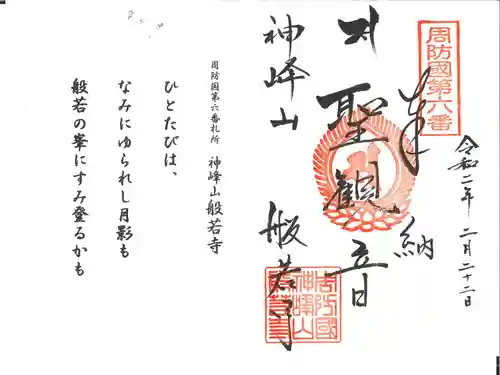 周防國第六番
奉納
令和二年 二月二十二日
聖観音
神峰山
般若寺
周防國
神峰山
般若寺
周防国第六番札所 神峰山般若寺
ひとたびは、
なみにゆられし月影も
般若の峯にすみ登るかも